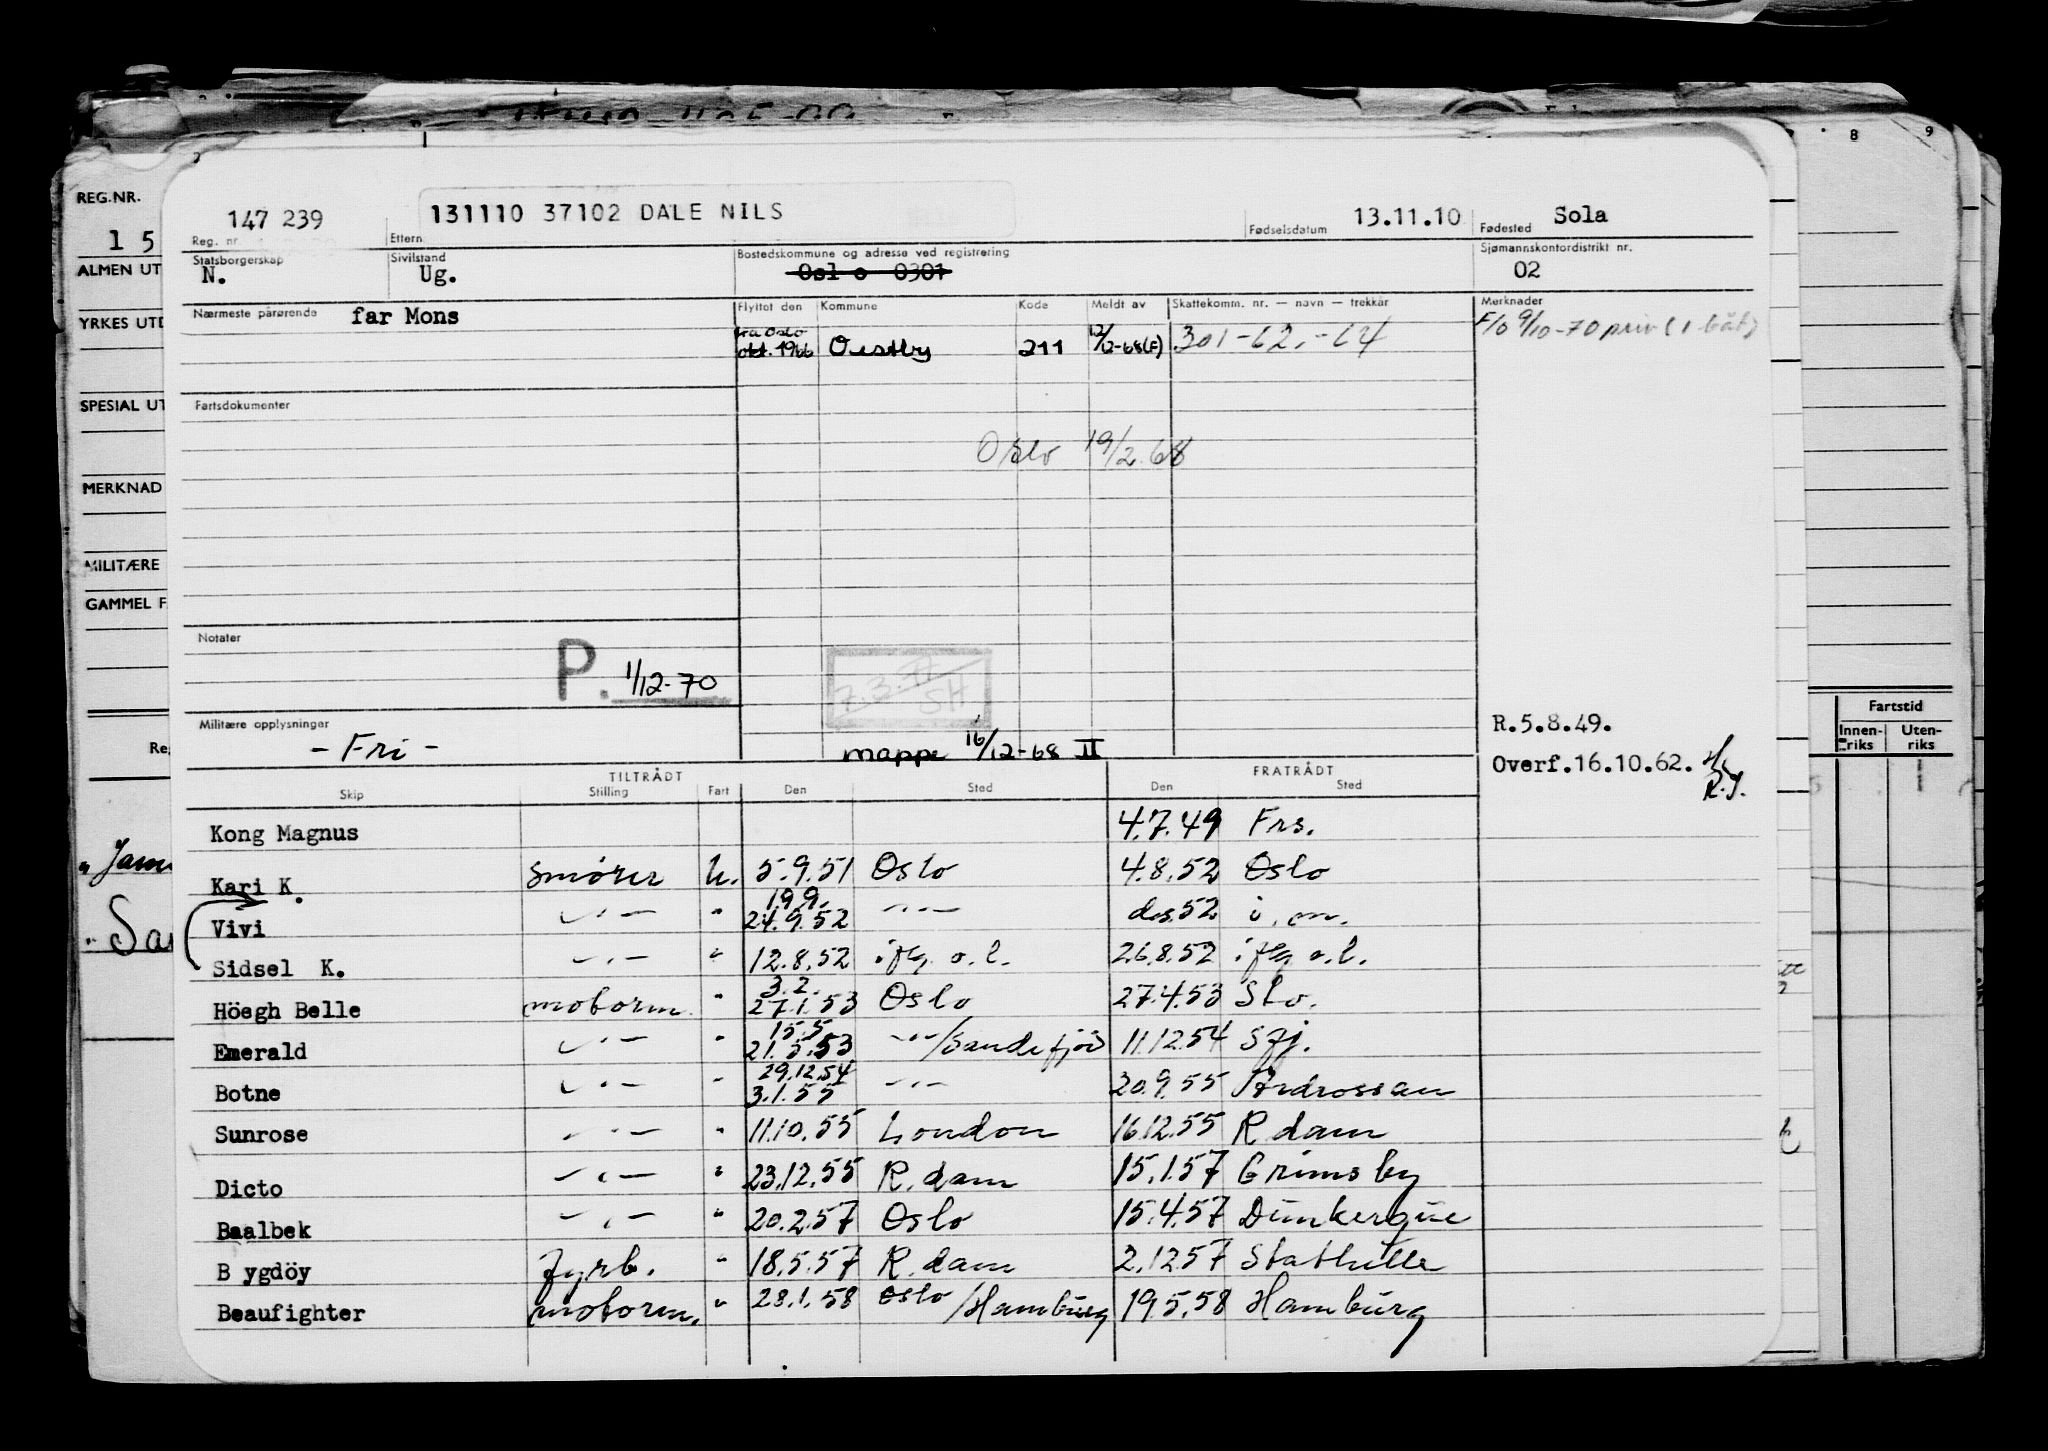 8 9
REG.NR. 147 239 131110 37102 DALE NILS 13.11.10 Sola
1 5 Reg. nr. Ettern Fødselsdatum Fødested
ALMEN UT Statsborgerskap Sivilstand Bostedskommune og adresse ved registrering Sjømannskontordistrikt nr.
N. Ug. Osl o 0301 02
YRKES UTD Nærmeste pårørende far Mons Flyttet den Kommune Kode Meldt av Skattekomm. nr. — navn — trekkår Merknader
fra Oslo F/o 9/10-70 priv (1 båt)
okt. 1966 Oestby 211 12/12-68(F) 301-62.-64
SPESIAL UT Fartsdokumenter
Oslo 19/2.68
MERKNAD
MILITÆRE
GAMMEL F
Notater
P. 1/12-70
SH
Militære opplysninger R.5.8.49. Fartstid
- Fri - mappe 16/12-68 II Innen-riks Uten-riks
Overf.16.10.62.
R.J.
TILTRÅDT FRATRÅDT
Skip Stilling Fart Den Sted Den Sted
Kong Magnus 4.7.49 Frs.
Kari K. Smører U. 5.9.51 Oslo 4.8.52 Oslo
19.9.
Vivi —"— " 24.9.52 —"— des.52 i. m.
Sidsel K. —"— " 12.8.52 iflg. o.l. 26.8.52 iflg o.l.
3.2.
Höegh Belle motorm. " 27.1.53 Oslo 27.4.53 Slo.
15.5
Emerald —"— " 21.5.53 —"—/Sandefjord 11.12.54 Sfj.
29.12.54
Botne —"— " 3.1.55 —"— 20.9.55 Ardrossan
Sunrose —"— " 11.10.55 London 16.12.55 R dam
Dicto —"— " 23.12.55 R.dam 15.1.57 Grimsby
Baalbek —"— " 20.2.57 Oslo 15.4.57 Dunkerque
B ygdöy fyrb. " 18.5.57 R.dam 2.12.57 Stathelle
Beaufighter motorm. " 28.1.58 Oslo /Hamburg 19.5.58 Hamburg